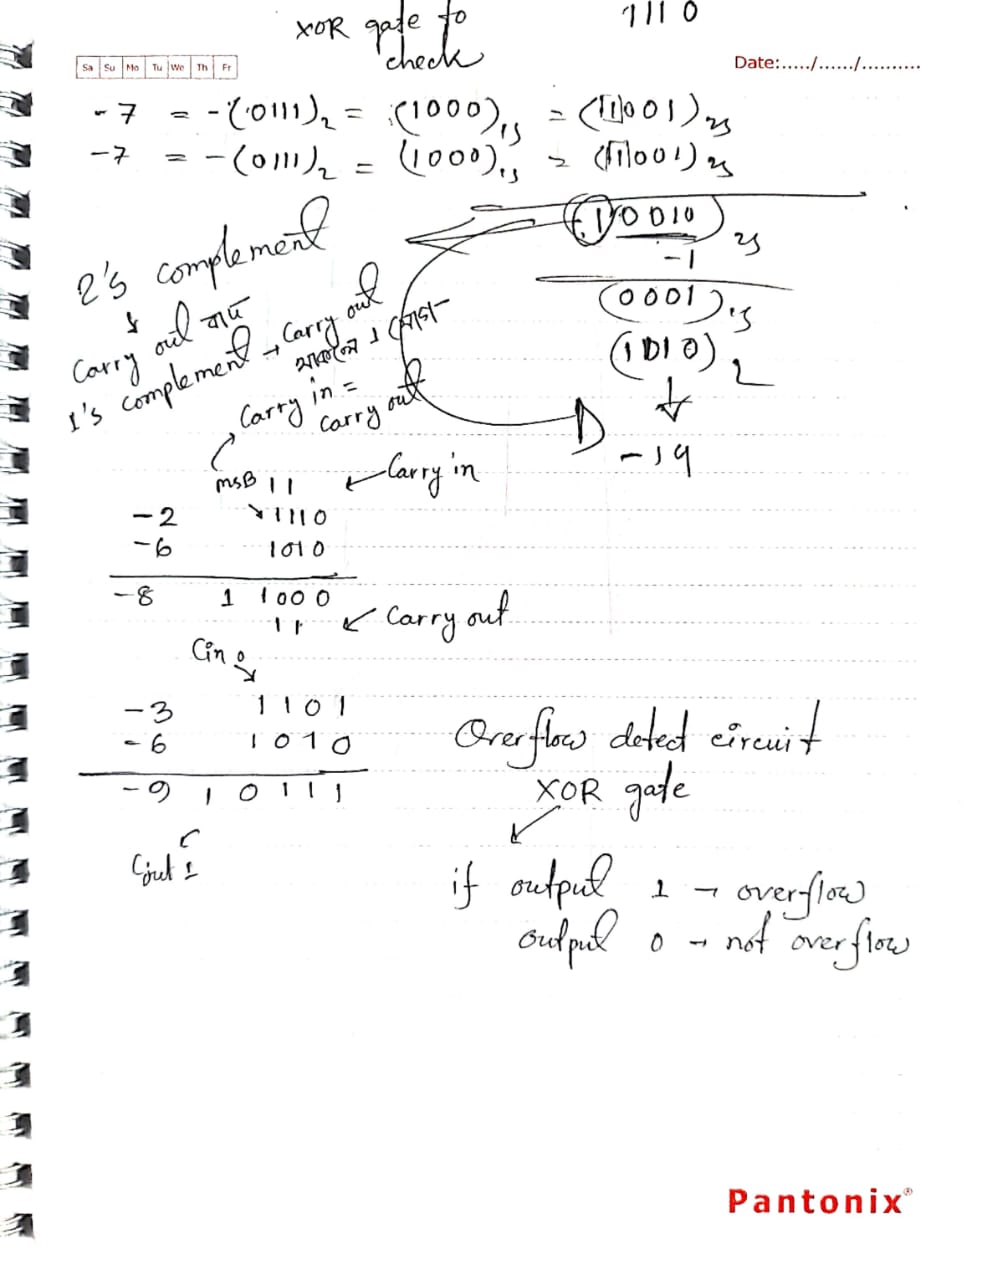 XOR gate to
check
1110
Sa Su Mo Tu We Th Fr
Date:...../....../..........
-7 = -(0111)2 = (1000)1s = (11001)2s
-7 = -(0111)2 = (1000)1s = (11001)2s
(10010)2s
-1
(0001)1s
(1010)2
-14
2's complement
Carry out বাদ
1's complement → Carry out
থাকলে 1 যোগ
Carry in =
Carry out
MSB 11 Carry in
-2 1110
-6 1010
-8 1 1000
11 Carry out
Cin 0
-3 1101
-6 1010
-9 1 0111
Cout 1
Overflow detect circuit
XOR gate
if output 1 → overflow
output 0 → not overflow
Pantonix®